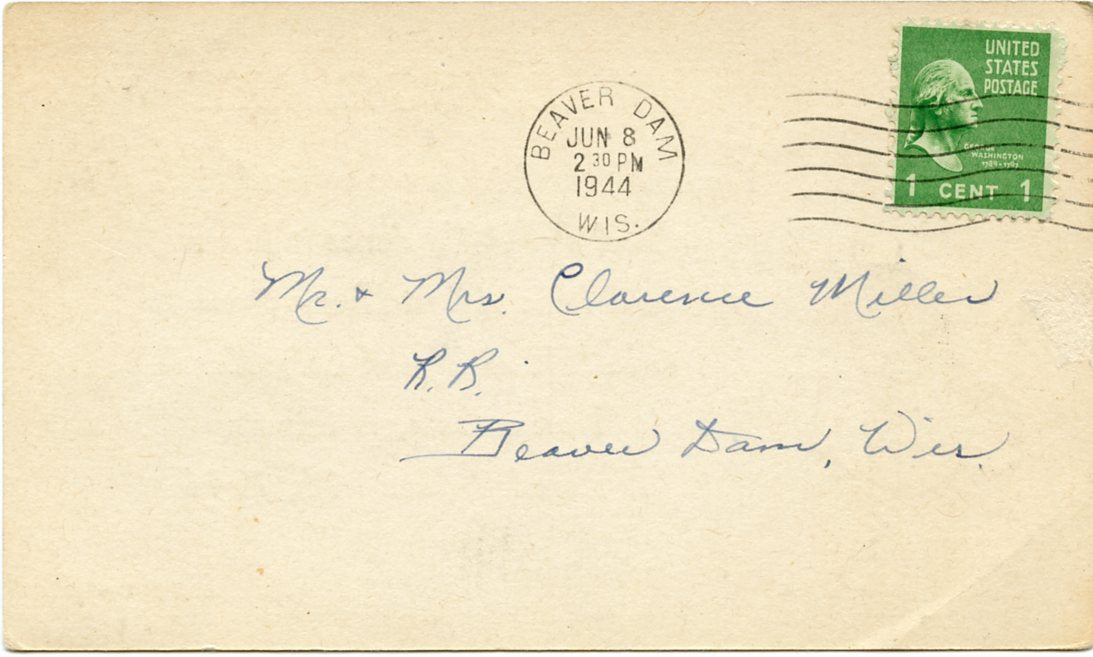 BEAVER DAM
JUN 8
2 30 PM
1944
WIS.
UNITED
STATES
POSTAGE
GEORGE
WASHINGTON
1789-1797
1 CENT 1
Mr. & Mrs. Clarence Miller
R.R.
Beaver Dam, Wis.